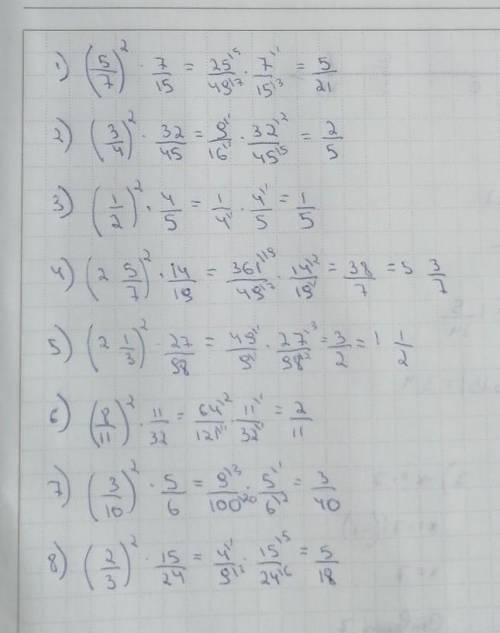 1) (5/7)² · 7/15 = 25^15/49^17 · 7^11/15^13 = 5/21
2) (3/4)² · 32/45 = 9^1/16^1 · 32^12/45^15 = 2/5
3) (1/2)² · 4/5 = 1/4^1 · 4^1/5 = 1/5
4) (2 5/7)² · 14/19 = 361^119/49^17 · 14^12/19^1 = 38/7 = 5 3/7
5) (2 1/3)² · 27/98 = 49^1/9^1 · 27^13/98^12 = 3/2 = 1 1/2
6) (8/11)² · 11/32 = 64^12/121^11 · 11^11/32^11 = 2/11
7) (3/10)² · 5/6 = 9^13/100^20 · 5^11/6^12 = 3/40
8) (2/3)² · 15/24 = 4^1/9^13 · 15^15/24^16 = 5/18